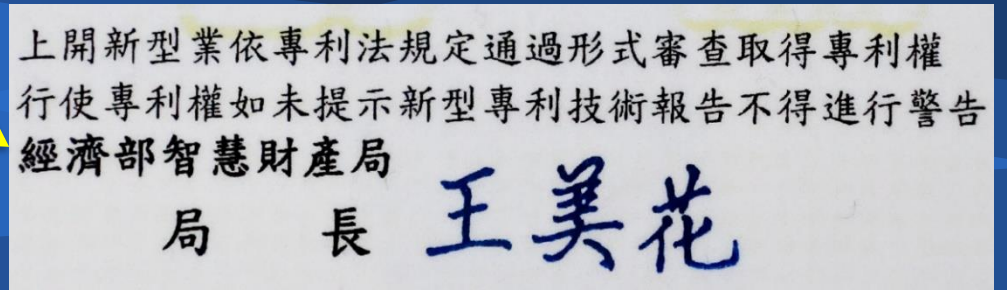 上開新型業依專利法規定通過形式審查取得專利權
行使專利權如未提示新型專利技術報告不得進行警告
經濟部智慧財產局
局 長 王美花